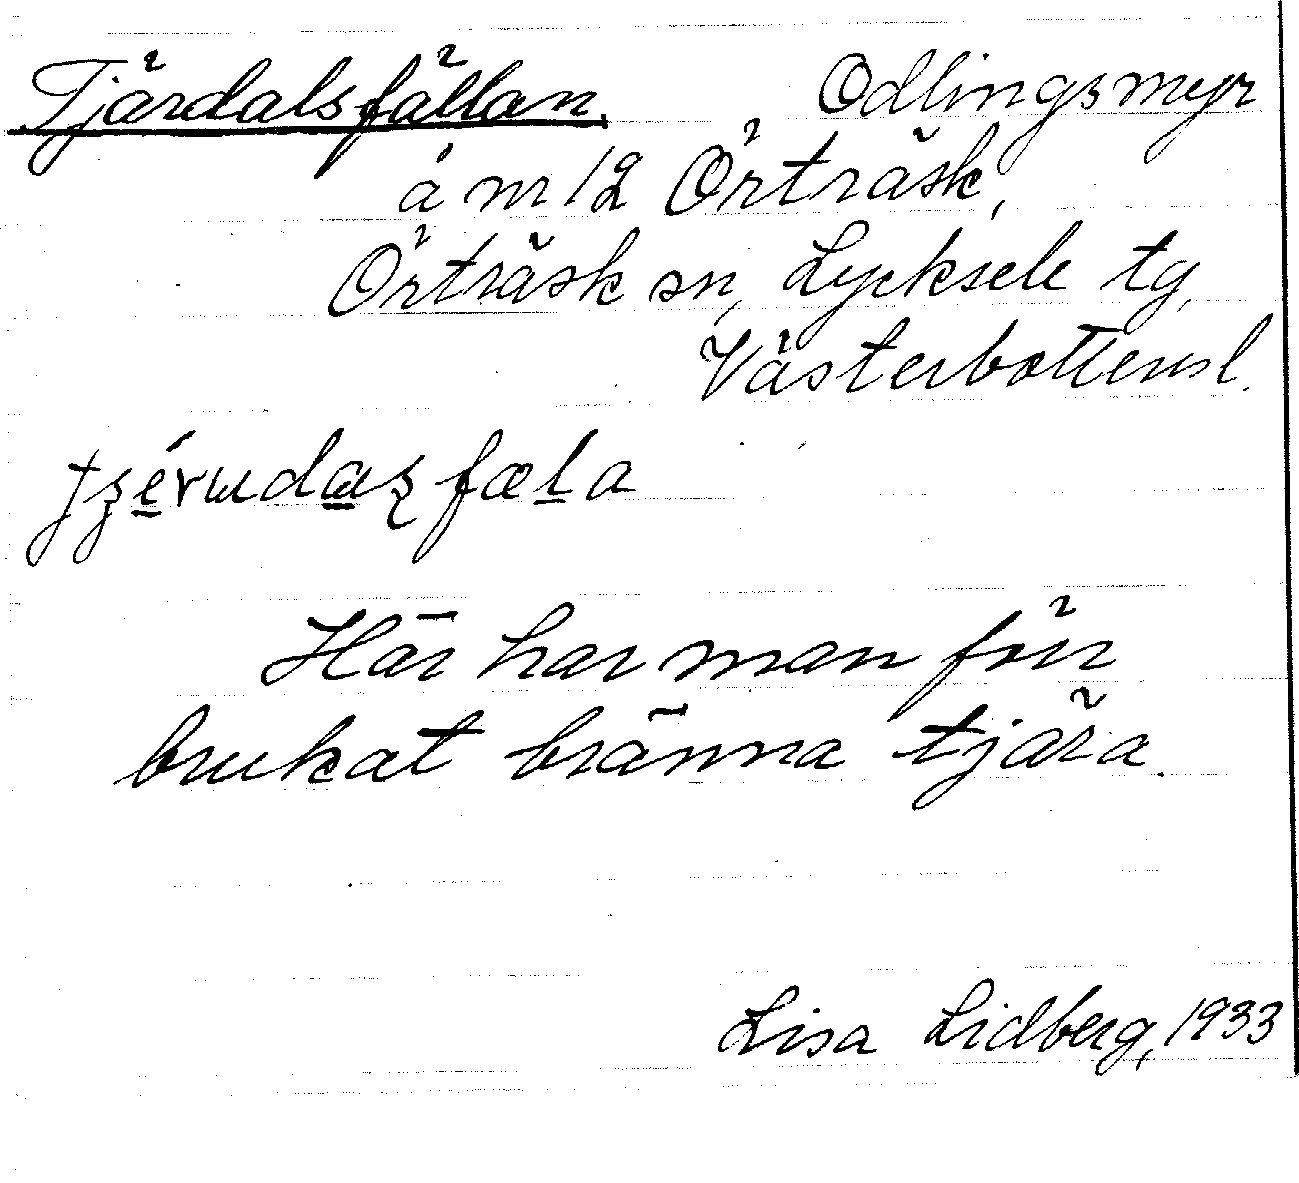 Tjärdalsfällan. Odlingsmyr
å nr 12 Örträsk,
Örträsk sn, Lycksele tg,
Västerbottensl.
Här har man för
brukat bränna tjära.
Lisa Lidberg, 1933